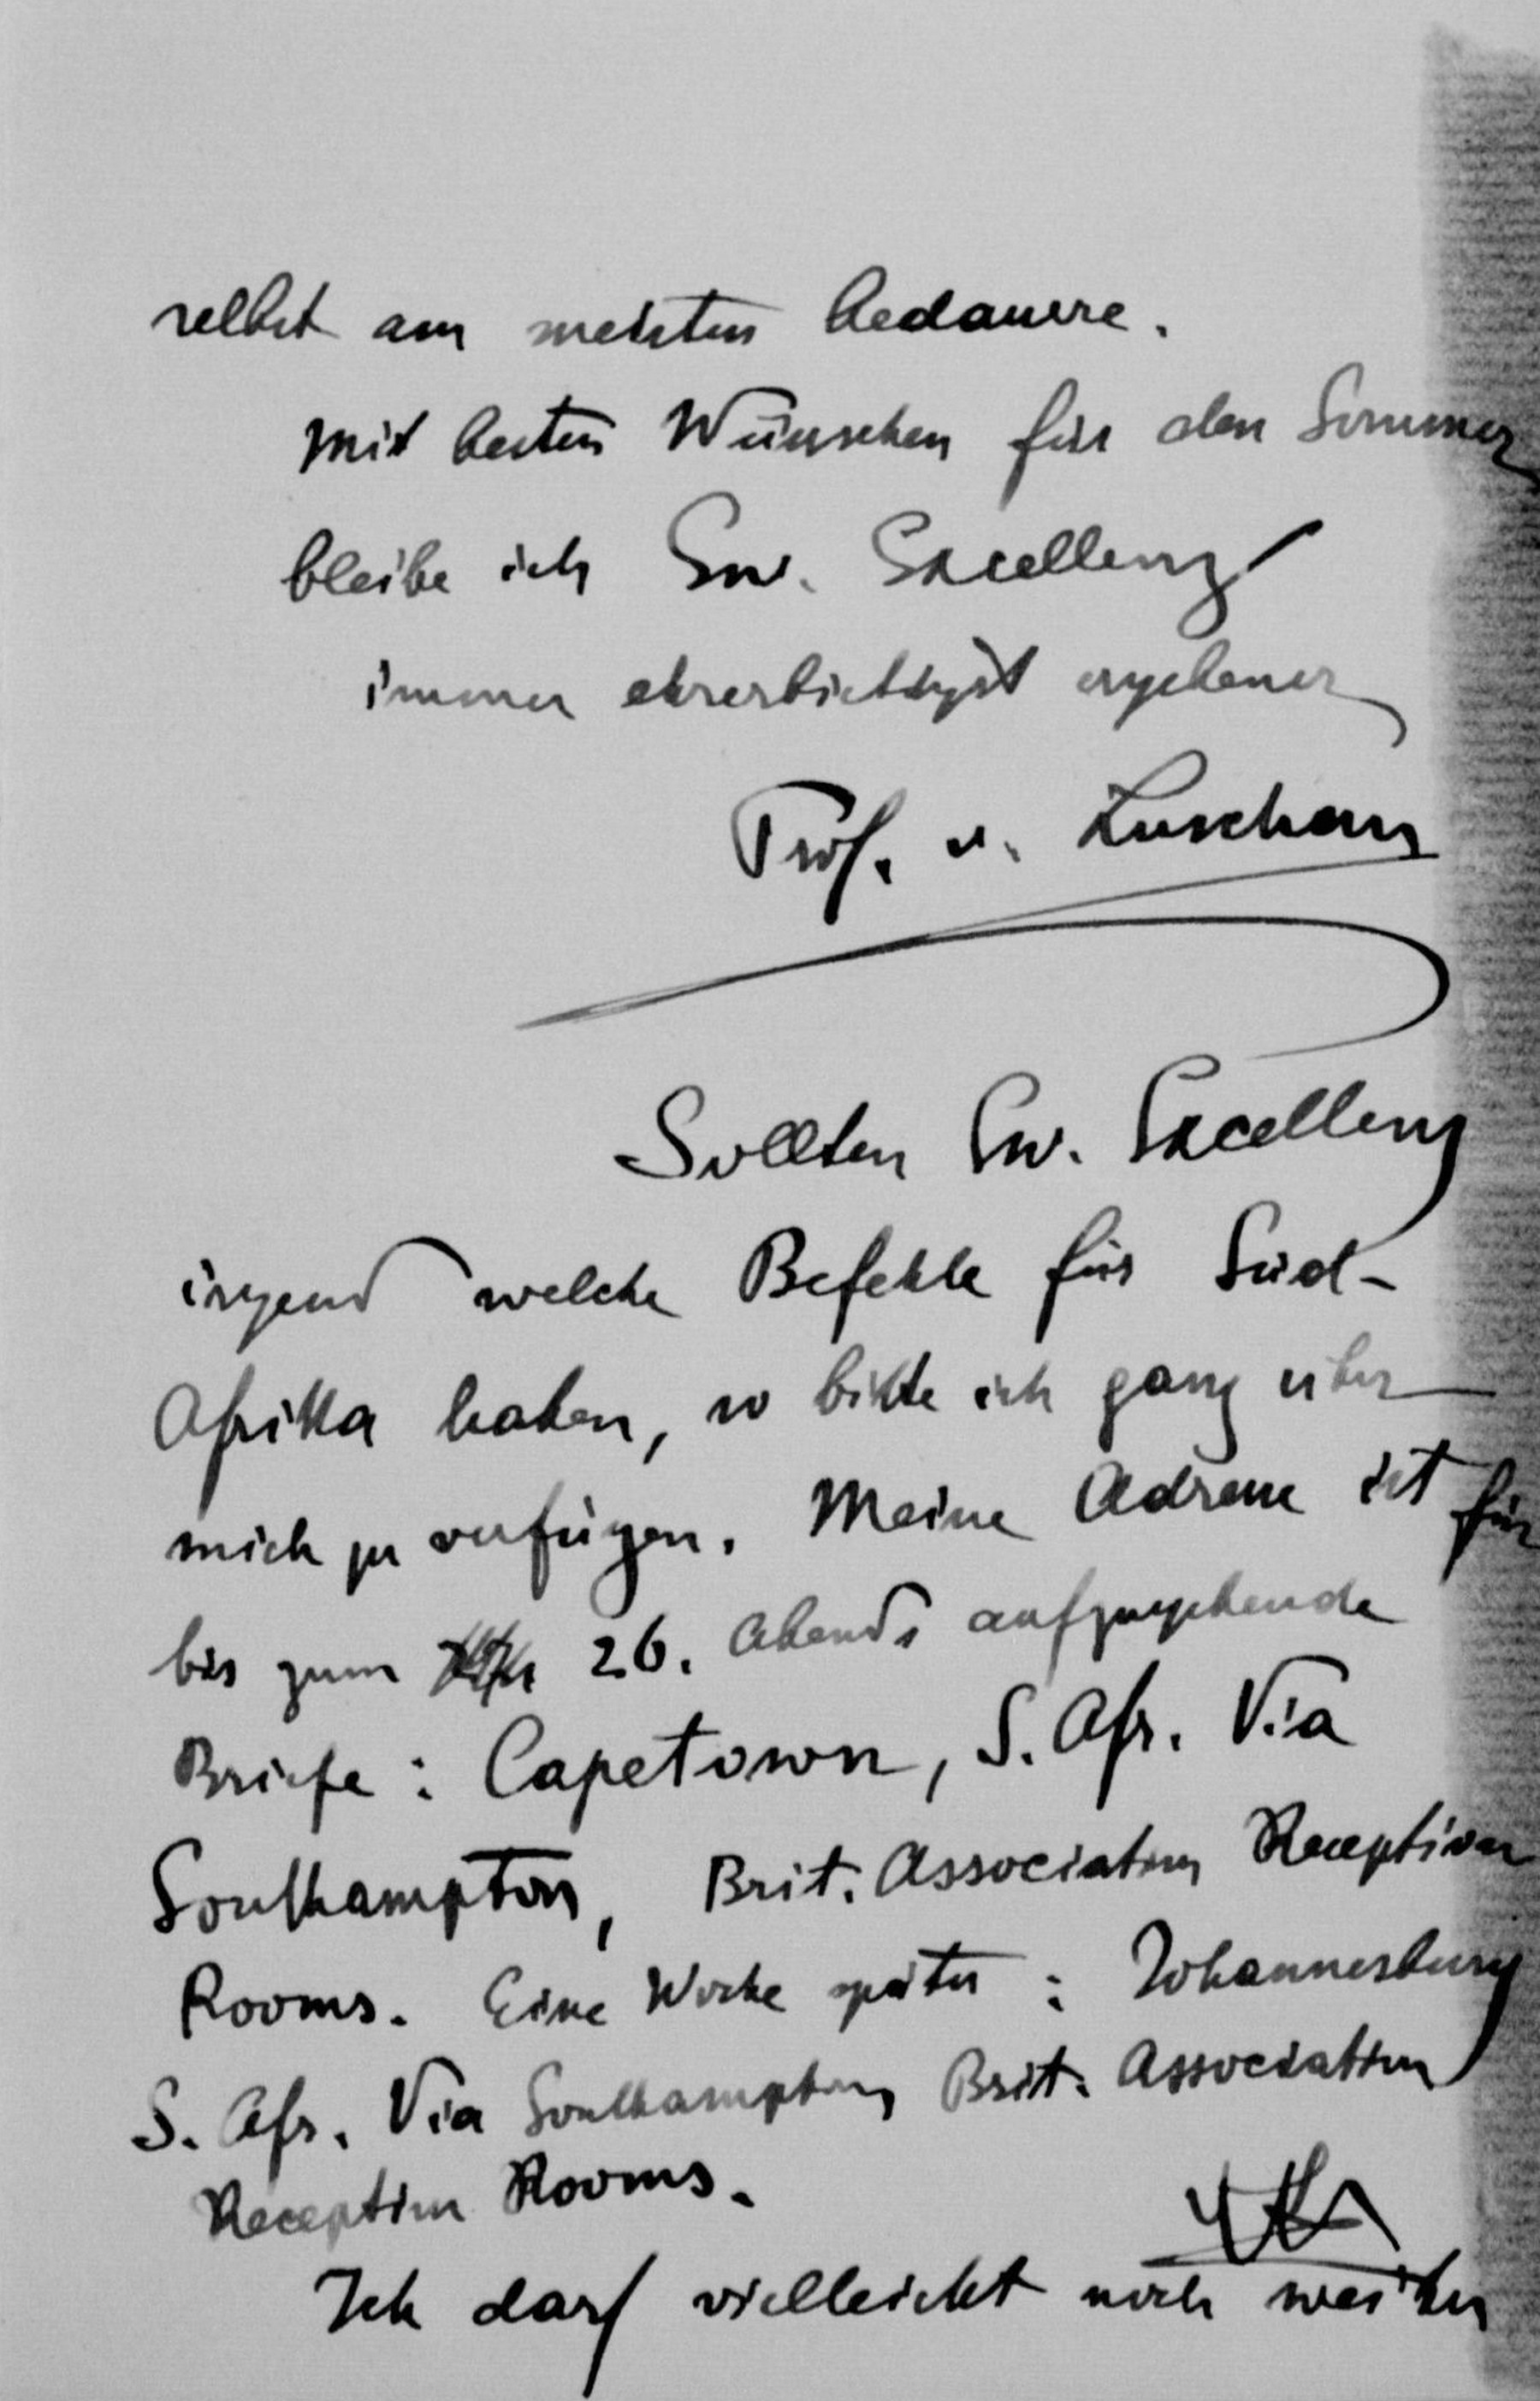 selbst am meisten bedauere.
Mit besten Wünschen für den Sommer
bleibe ich Ew. Excellenz
immer ehrerbietigst ergebener
Prof. v. Luschan
Sollten Ew. Excellenz
irgend welche Befehle für Süd-
Afrika haben, so bitte ich ganz über
mich zu verfügen. Meine Adresse ist für
bis zum 26. Abends aufzugebende
Briefe: Capetown, S. Afr. Via
Southampton, Brit. Association Reception
Rooms. Eine Woche später: Johannesburg
S. Afr. Via Southampton Brit. Association
Reception Rooms.
Ich darf vielleicht noch weiter